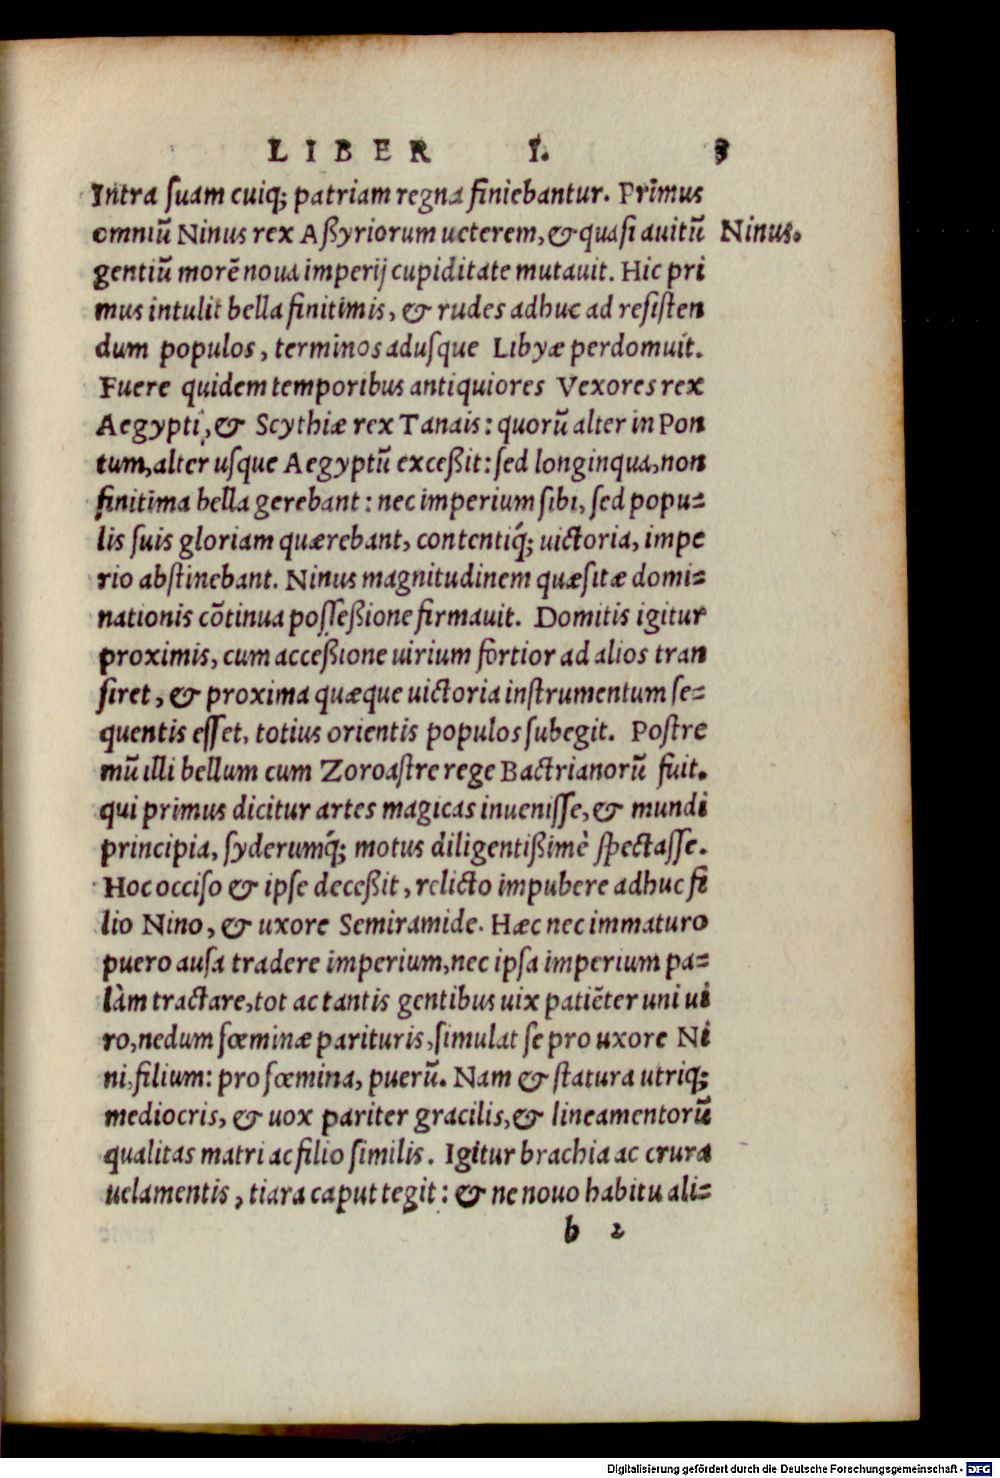 LIBER I. 3
Intra ſuam cuiq; patriam regna finiebantur. Primus
omniũ Ninus rex Aßyriorum ueterem, & quaſi auitũ Ninus.
gentiũ morẽ noua imperij cupiditate mutauit. Hic pri
mus intulit bella finitimis, & rudes adhuc ad reſiſten
dum populos, terminos aduſque Libyæ perdomuit.
Fuere quidem temporibus antiquiores Vexores rex
Aegypti, & Scythiæ rex Tanais: quorũ alter in Pon
tum, alter uſque Aegyptũ exceßit: ſed longinqua, non
finitima bella gerebant: nec imperium ſibi, ſed popu⸗
lis ſuis gloriam quærebant, contentiq́; uictoria, impe
rio abſtinebant. Ninus magnitudinem quæſitæ domi⸗
nationis cõtinua poſſeßione firmauit. Domitis igitur
proximis, cum acceßione uirium fortior ad alios tran
ſiret, & proxima quæque uictoria inſtrumentum ſe⸗
quentis eſſet, totius orientis populos ſubegit. Poſtre
mũ illi bellum cum Zoroaſtre rege Bactrianorũ fuit.
qui primus dicitur artes magicas inueniſſe, & mundi
principia, ſyderumq́; motus diligentißimè ſpectaſſe.
Hoc occiſo & ipſe deceßit, relicto impubere adhuc fi
lio Nino, & uxore Semiramide. Hæc nec immaturo
puero auſa tradere imperium, nec ipſa imperium pa⸗
làm tractare, tot ac tantis gentibus uix patiẽter uni ui
ro, nedum fœminæ parituris, ſimulat ſe pro uxore Ni
ni, filium: pro fœmina, puerũ. Nam & ſtatura utriq;
mediocris, & uox pariter gracilis, & lineamentorũ
qualitas matri ac filio ſimilis. Igitur brachia ac crura
uelamentis, tiara caput tegit: & ne nouo habitu ali⸗
b 2
Digitalisierung gefördert durch die Deutsche Forschungsgemeinschaft - DFG